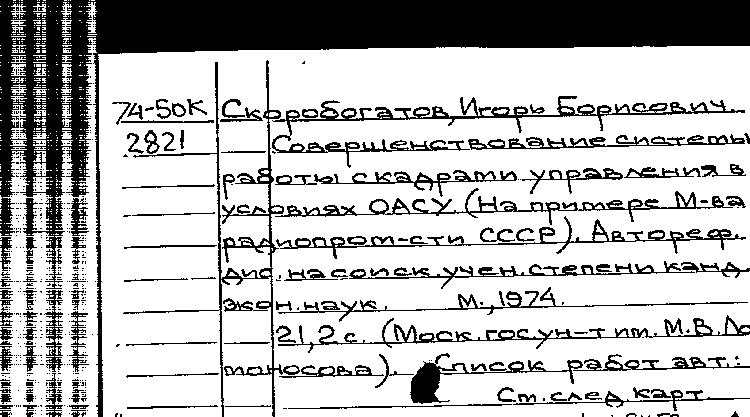 74-50К Скоробогатов, Игорь Борисович.
2821 Совершенствование системы
работы с кадрами управления в
условиях ОАСУ. (На примере М-ва
радиопром-сти СССР). Автореф.
дис. на соиск. учен. степени канд.
экон. наук. М., 1974.
21,2 с. (Моск. гос. ун-т им. М.В. Ло
моносова). Список работ авт.:
См. след. карт.